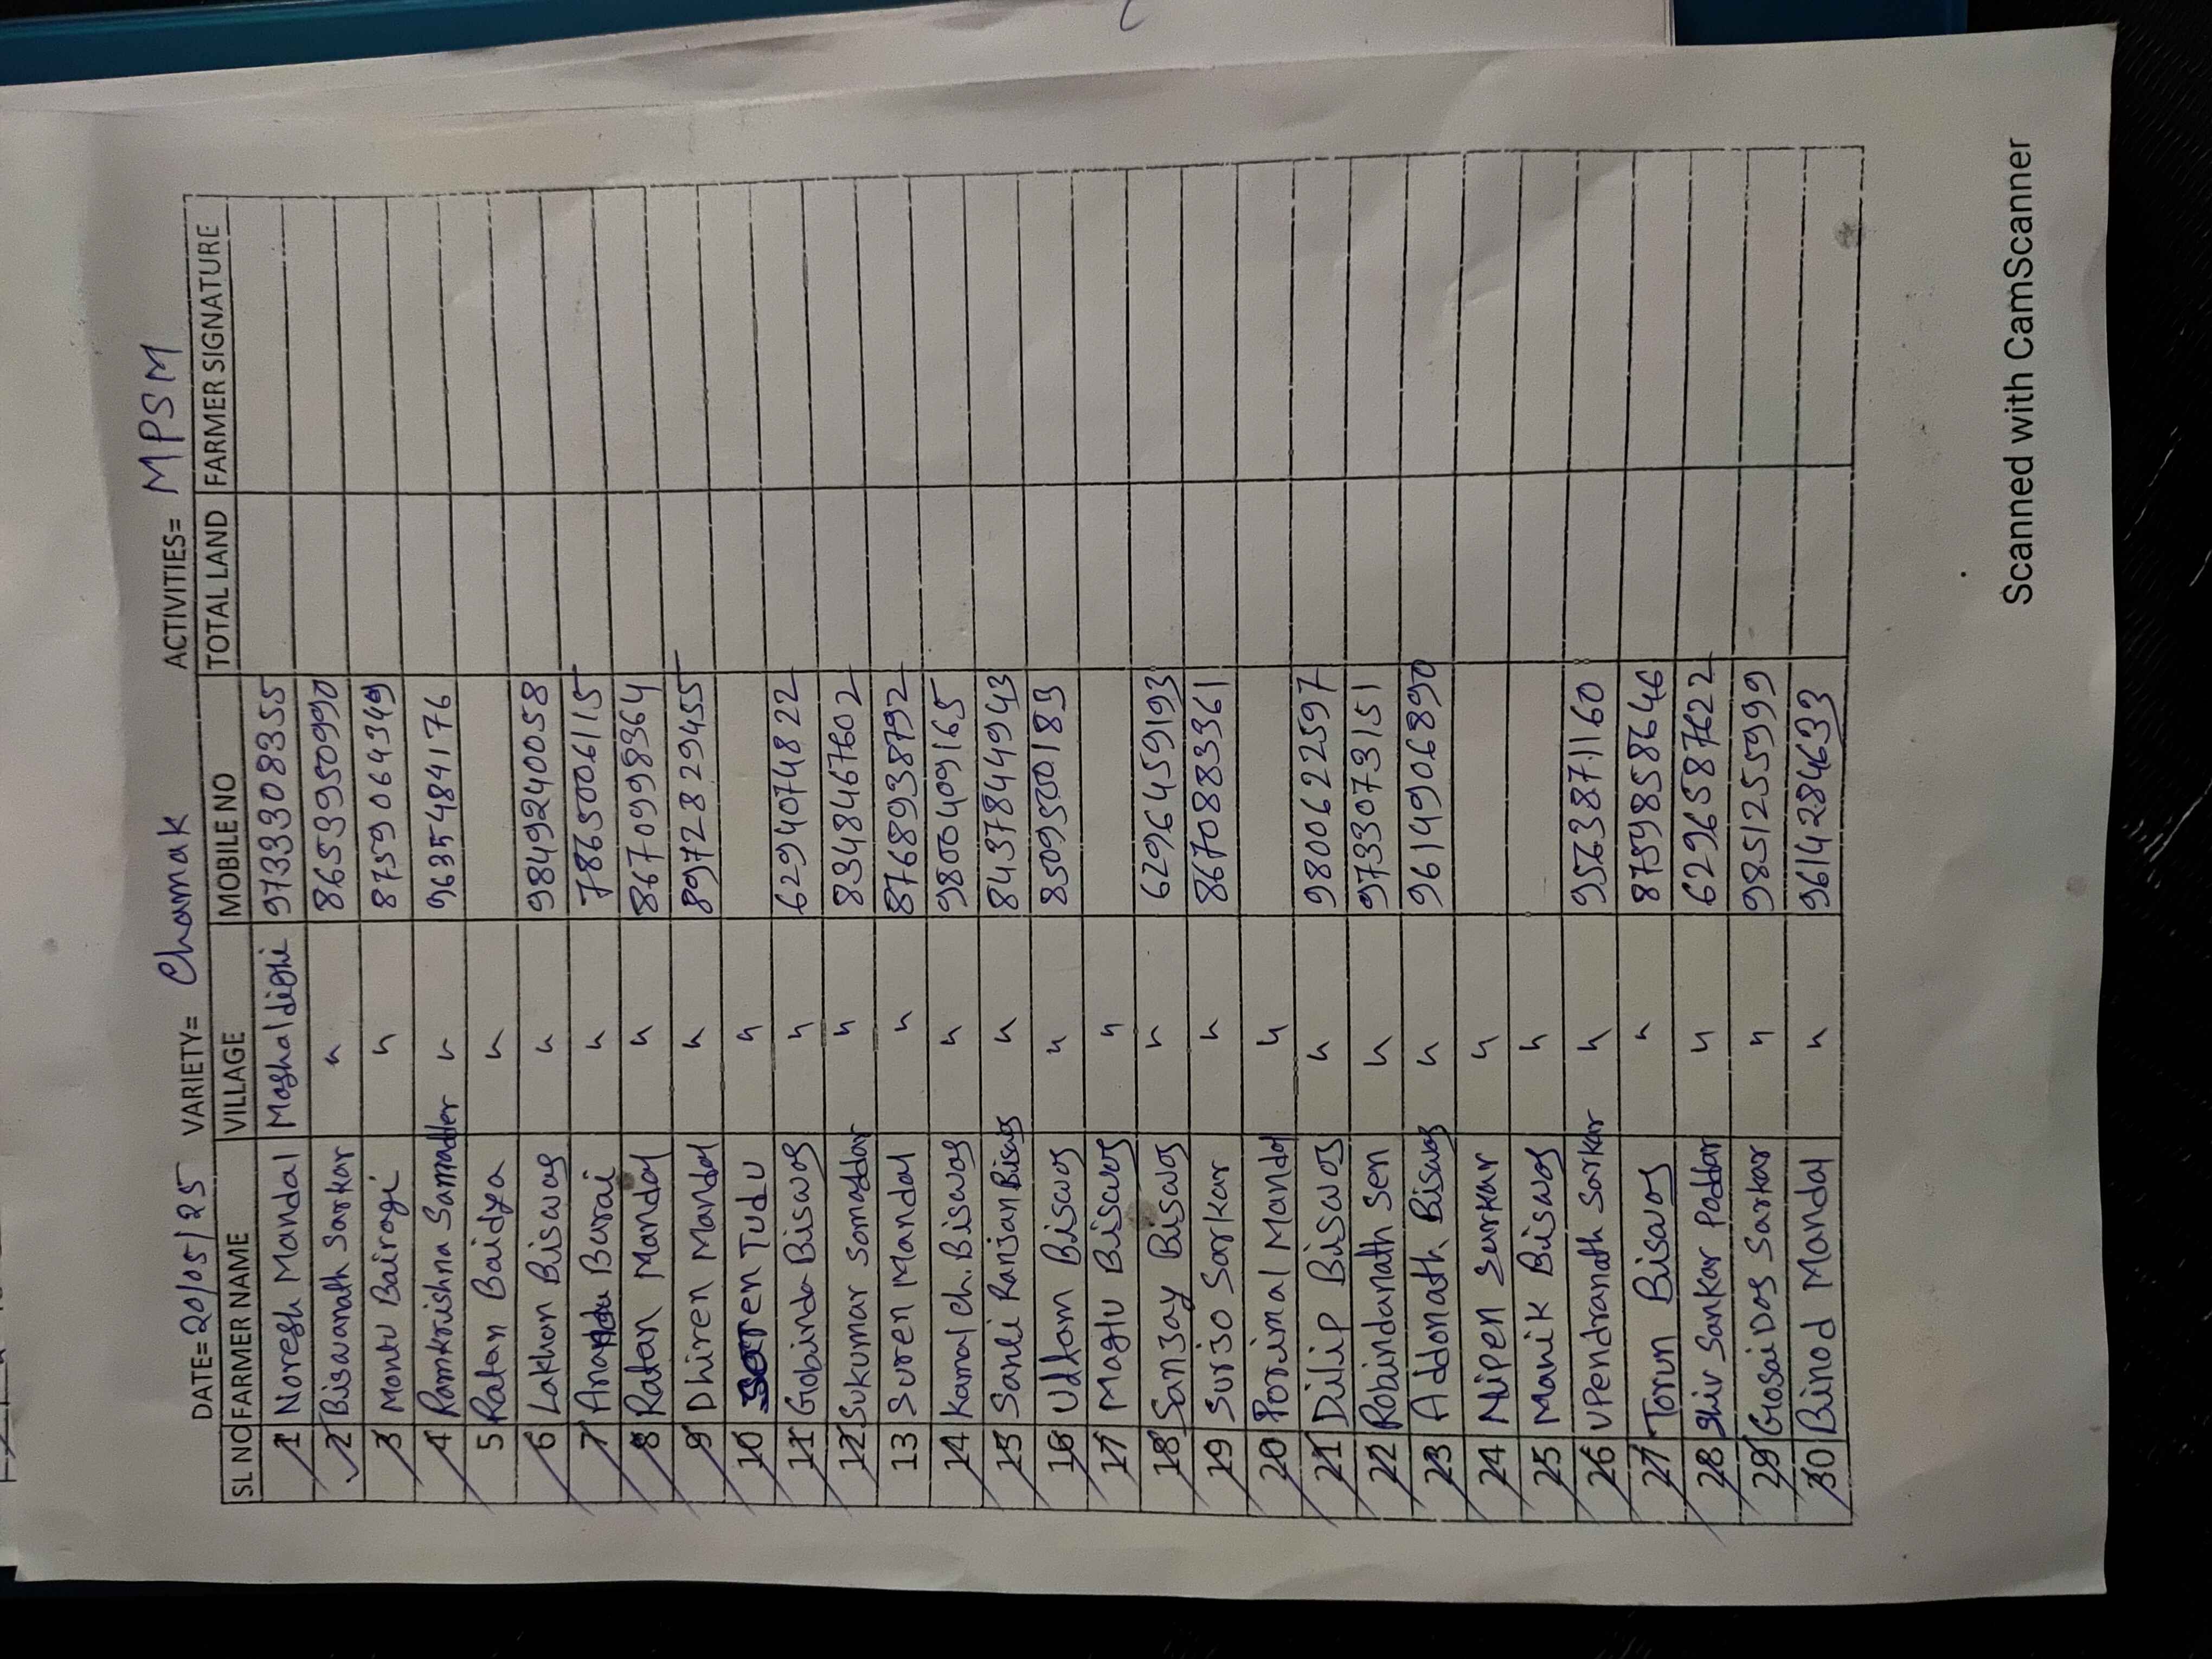 DATE= 20/05/25 VARIETY= Chamak ACTIVITIES= MPSM
SL NO FARMER NAME VILLAGE MOBILE NO TOTAL LAND FARMER SIGNATURE
1 Noresh Mandal Moshaldighi 9733308355
2 Biswanath Sarkar " 8653950990
3 Montu Bairagi " 8759064349
4 Ramkrishna Samadder " 9635484176
5 Ratan Baidya "
6 Lakhan Biswas " 9849240058
7 Burai " 7865006115
8 Ratan Mandal " 8670998364
9 Dhiren Mandal " 8972829455
10 Soren Tudu "
11 Gobinda Biswas " 6294074822
12 Sukumar Somaddar " 8348467602
13 Suren Mandal " 8768938792
14 Kamal Ch. Biswas " 9800409165
15 Ranjan Biswas " 8437844943
16 Uttam Biswas " 8509500183
17 Maglu Biswas "
18 Sanjay Biswas " 6296459193
19 Surjo Sarkar " 8670883361
20 Porimal Mandal "
21 Dilip Biswas " 9800622597
22 Robindanath Sen " 9733073151
23 Addonath Biswas " 9614906890
24 Nipen Sarkar "
25 Manik Biswas "
26 UPendranath Sarkar " 9563871160
27 Torun Biswas " 8759858646
28 Shiv Sankar Poddar " 6296587622
29 Gosai Das Sarkar " 9851255999
30 Binod Mandal " 9614284633
Scanned with CamScanner